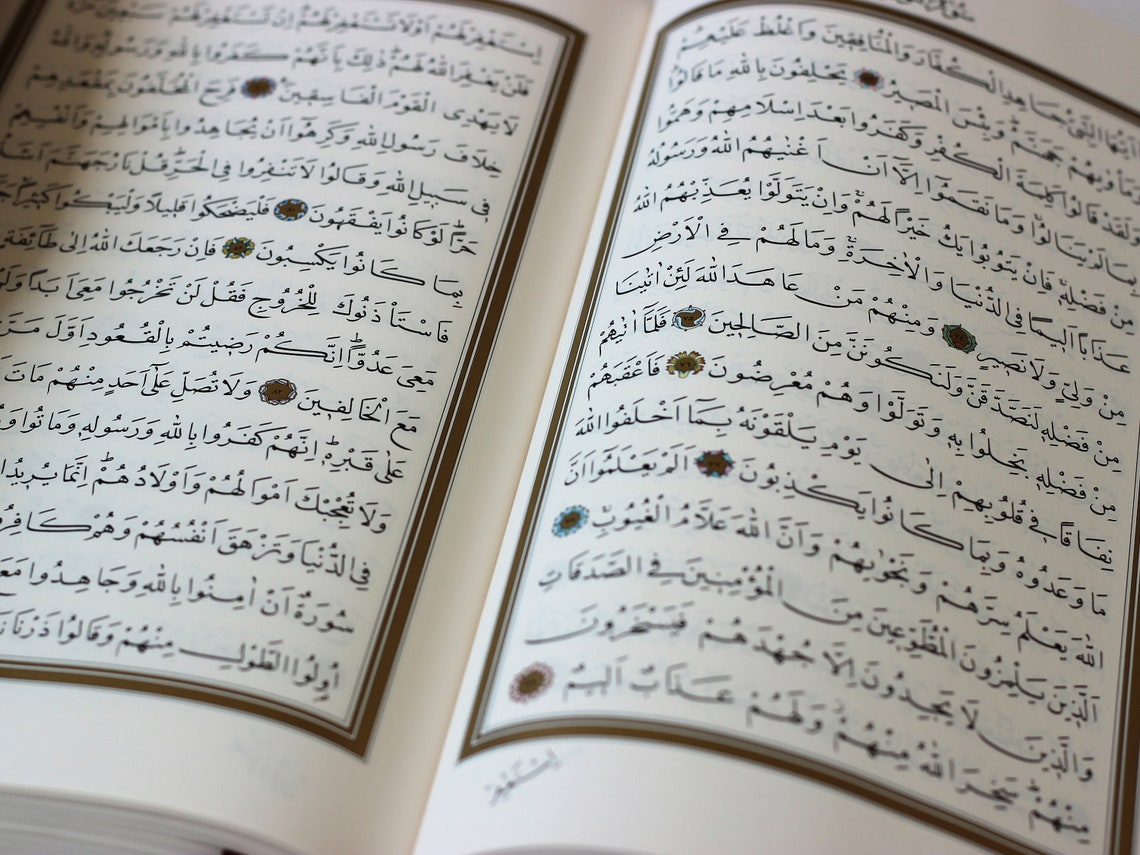 يَٓا اَيُّهَا النَّبِيُّ جَاهِدِ الْكُفَّارَ وَالْمُنَافِقِينَ وَاغْلُظْ عَلَيْهِمْ
وَمَأْوٰيهُمْ جَهَنَّمُ وَبِئْسَ الْمَصِيرُ ٧٣ يَحْلِفُونَ بِاللّٰهِ مَا قَالُوا
وَلَقَدْ قَالُوا كَلِمَةَ الْكُفْرِ وَكَفَرُوا بَعْدَ اِسْلَامِهِمْ وَهَمُّوا
بِمَا لَمْ يَنَالُوا وَمَا نَقَمُٓوا اِلَّٓا اَنْ اَغْنٰيهُمُ اللّٰهُ وَرَسُولُهُ
مِنْ فَضْلِهٖ فَاِنْ يَتُوبُوا يَكُ خَيْرًا لَهُمْ وَاِنْ يَتَوَلَّوْا يُعَذِّبْهُمُ اللّٰهُ
عَذَابًا اَلِيمًا فِي الدُّنْيَا وَالْاٰخِرَةِ وَمَا لَهُمْ فِي الْاَرْضِ
مِنْ وَلِيٍّ وَلَا نَصِيرٍ ٧٤ وَمِنْهُمْ مَنْ عَاهَدَ اللّٰهَ لَئِنْ اٰتٰينَا
مِنْ فَضْلِهٖ لَنَصَّدَّقَنَّ وَلَنَكُونَنَّ مِنَ الصَّالِحِينَ ٧٥ فَلَمَّٓا اٰتٰيهُمْ
مِنْ فَضْلِهٖ بَخِلُوا بِهٖ وَتَوَلَّوْا وَهُمْ مُعْرِضُونَ ٧٦ فَاَعْقَبَهُمْ
نِفَاقًا فِي قُلُوبِهِمْ اِلٰى يَوْمِ يَلْقَوْنَهُ بِمَٓا اَخْلَفُوا اللّٰهَ
مَا وَعَدُوهُ وَبِمَا كَانُوا يَكْذِبُونَ ٧٧ اَلَمْ يَعْلَمُٓوا اَنَّ
اللّٰهَ يَعْلَمُ سِرَّهُمْ وَنَجْوٰيهُمْ وَاَنَّ اللّٰهَ عَلَّامُ الْغُيُوبِ ٧٨
اَلَّذِينَ يَلْمِزُونَ الْمُطَّوِّعِينَ مِنَ الْمُؤْمِنِينَ فِي الصَّدَقَاتِ
وَالَّذِينَ لَا يَجِدُونَ اِلَّا جُهْدَهُمْ فَيَسْخَرُونَ
مِنْهُمْ سَخِرَ اللّٰهُ مِنْهُمْ وَلَهُمْ عَذَابٌ اَلِيمٌ ٧٩
اِسْتَغْفِرْ
اِسْتَغْفِرْ لَهُمْ اَوْ لَا تَسْتَغْفِرْ لَهُمْ اِنْ تَسْتَغْفِرْ لَهُمْ سَبْعِينَ مَرَّةً
فَلَنْ يَغْفِرَ اللّٰهُ لَهُمْ ذٰلِكَ بِاَنَّهُمْ كَفَرُوا بِاللّٰهِ وَرَسُولِهٖ وَاللّٰهُ
لَا يَهْدِي الْقَوْمَ الْفَاسِقِينَ ٨٠ فَرِحَ الْمُخَلَّفُونَ بِمَقْعَدِهِمْ
خِلَافَ رَسُولِ اللّٰهِ وَكَرِهُٓوا اَنْ يُجَاهِدُوا بِاَمْوَالِهِمْ وَاَنْفُسِهِمْ
فِي سَبِيلِ اللّٰهِ وَقَالُوا لَا تَنْفِرُوا فِي الْحَرِّ قُلْ نَارُ جَهَنَّمَ اَشَدُّ
حَرًّا لَوْ كَانُوا يَفْقَهُونَ ٨١ فَلْيَضْحَكُوا قَلِيلًا وَلْيَبْكُوا كَثِيرًا
بِمَا كَانُوا يَكْسِبُونَ ٨٢ فَاِنْ رَجَعَكَ اللّٰهُ اِلٰى طَٓائِفَةٍ
فَاسْتَأْذَنُوكَ لِلْخُرُوجِ فَقُلْ لَنْ تَخْرُجُوا مَعِيَ اَبَدًا وَلَنْ
مَعِيَ عَدُوًّا اِنَّكُمْ رَضِيتُمْ بِالْقُعُودِ اَوَّلَ مَرَّةٍ
مَعَ الْخَالِفِينَ ٨٣ وَلَا تُصَلِّ عَلٰٓى اَحَدٍ مِنْهُمْ مَاتَ
عَلٰى قَبْرِهٖ اِنَّهُمْ كَفَرُوا بِاللّٰهِ وَرَسُولِهٖ وَمَاتُوا
وَلَا تُعْجِبْكَ اَمْوَالُهُمْ وَاَوْلَادُهُمْ اِنَّمَا يُرِيدُ
فِي الدُّنْيَا وَتَزْهَقَ اَنْفُسُهُمْ وَهُمْ كَافِرُونَ
سُورَةٌ اَنْ اٰمِنُوا بِاللّٰهِ وَجَاهِدُوا مَعَ
اُولُوا الطَّوْلِ مِنْهُمْ وَقَالُوا ذَرْنَا